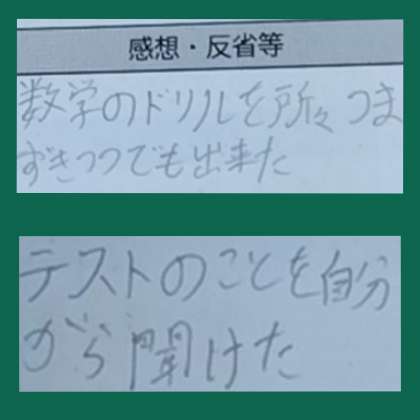 感想・反省等
数学のドリルを所々つま
ずきつつでも出来た
テストのことを自分
から聞けた